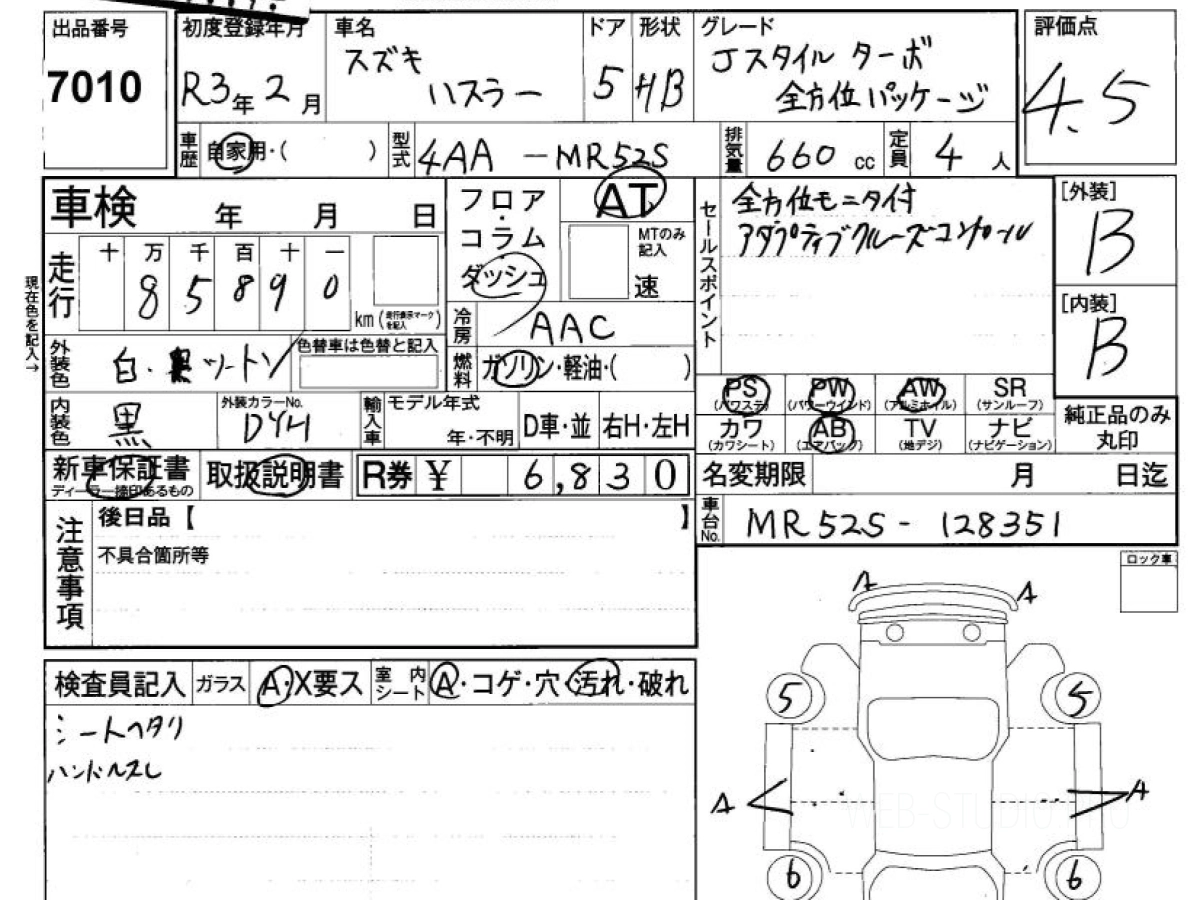 出品番号
7010
初度登録年月
R3年2月
車名
スズキ
ハスラー
ドア
5
形状
HB
グレード
Jスタイル ターボ
全方位パッケージ
評価点
4.5
車歴
自家用・( )
型式
4AA-MR52S
排気量
660 cc
定員
4人
車検 年 月 日
走行
十 万 千 百 十 一
8 5 8 9 0
km(走行表示マークを記入)
現在色を記入→
フロア・コラム・ダッシュ
AT
MTのみ記入
速
冷房
AAC
燃料
ガソリン・軽油・( )
セールスポイント
全方位モニタ付
アダプティブクルーズコントロール
[外装]
B
[内装]
B
外装色
白・黒ツートン
色替車は色替と記入
内装色
黒
外装カラーNo.
DYH
輸入車
モデル年式
年・不明
D車・並
右H・左H
PS
(パワステ)
PW
(パワーウインド)
AW
(アルミホイル)
SR
(サンルーフ)
カワ
(カワシート)
AB
(エアバック)
TV
(地デジ)
ナビ
(ナビゲーション)
純正品のみ
丸印
新車保証書
ディーラー捺印あるもの
取扱説明書
R券 ¥ 6,830
名変期限 月 日迄
車台No.
MR52S-128351
注意事項
後日品【 】
不具合箇所等
ロック車
検査員記入
ガラス
A・X要ス
室内シート
A・コゲ・穴・汚れ・破れ
シートヘタリ
ハンドルスレ
A A
5 5
A A
6 6